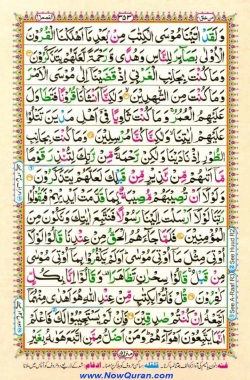 القصص ٢٨
٣٥٣
وَلَقَدْ اٰتَيْنَا مُوْسَى الْكِتٰبَ مِنْۢ بَعْدِ مَاۤ اَهْلَكْنَا الْقُرُوْنَ
الْاُوْلٰى بَصَآئِرَ لِلنَّاسِ وَهُدًى وَّرَحْمَةً لَّعَلَّهُمْ يَتَذَكَّرُوْنَ
وَمَا كُنْتَ بِجَانِبِ الْغَرْبِيِّ اِذْ قَضَيْنَاۤ اِلٰى مُوْسَى الْاَمْرَ
وَمَا كُنْتَ مِنَ الشّٰهِدِيْنَ وَلٰكِنَّاۤ اَنْشَاْنَا قُرُوْنًا فَتَطَاوَلَ
عَلَيْهِمُ الْعُمُرُ وَمَا كُنْتَ ثَاوِيًا فِيْۤ اَهْلِ مَدْيَنَ تَتْلُوْا
عَلَيْهِمْ اٰيٰتِنَا وَلٰكِنَّا كُنَّا مُرْسِلِيْنَ وَمَا كُنْتَ بِجَانِبِ
الطُّوْرِ اِذْ نَادَيْنَا وَلٰكِنْ رَّحْمَةً مِّنْ رَّبِّكَ لِتُنْذِرَ قَوْمًا
مَّاۤ اَتٰىهُمْ مِّنْ نَّذِيْرٍ مِّنْ قَبْلِكَ لَعَلَّهُمْ يَتَذَكَّرُوْنَ
وَلَوْلَاۤ اَنْ تُصِيْبَهُمْ مُّصِيْبَةٌۢ بِمَا قَدَّمَتْ اَيْدِيْهِمْ فَيَقُوْلُوْا
رَبَّنَا لَوْلَاۤ اَرْسَلْتَ اِلَيْنَا رَسُوْلًا فَنَتَّبِعَ اٰيٰتِكَ وَنَكُوْنَ مِنَ
الْمُؤْمِنِيْنَ فَلَمَّا جَآءَهُمُ الْحَقُّ مِنْ عِنْدِنَا قَالُوْا لَوْلَاۤ
اُوْتِيَ مِثْلَ مَاۤ اُوْتِيَ مُوْسٰى اَوَلَمْ يَكْفُرُوْا بِمَاۤ اُوْتِيَ مُوْسٰى
مِنْ قَبْلُ قَالُوْا سِحْرٰنِ تَظَاهَرَا وَقَالُوْۤا اِنَّا بِكُلٍّ
كٰفِرُوْنَ قُلْ فَاْتُوْا بِكِتٰبٍ مِّنْ عِنْدِ اللّٰهِ هُوَ اَهْدٰى مِنْهُمَاۤ
اَتَّبِعْهُ اِنْ كُنْتُمْ صٰدِقِيْنَ فَاِنْ لَّمْ يَسْتَجِيْبُوْا لَكَ فَاعْلَمْ
اَنَّمَا يَتَّبِعُوْنَ اَهْوَآءَهُمْ وَمَنْ اَضَلُّ مِمَّنِ اتَّبَعَ هَوٰىهُ بِغَيْرِ
www.NowQuran.com